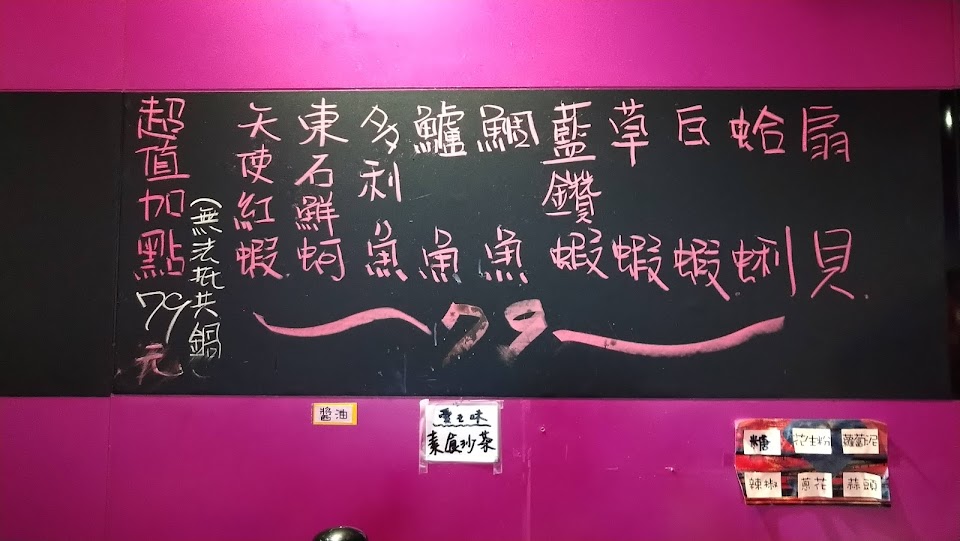 超值加點79元
(無法抵共鍋)
天使紅蝦
東石鮮蚵
多利魚
鱸魚
鯛魚
藍鑽蝦
草蝦
白蝦
蛤蜊
扇貝
79
醬油
愛之味
素食沙茶
糖 花生粉 蘿蔔泥
辣椒 蔥花 蒜頭